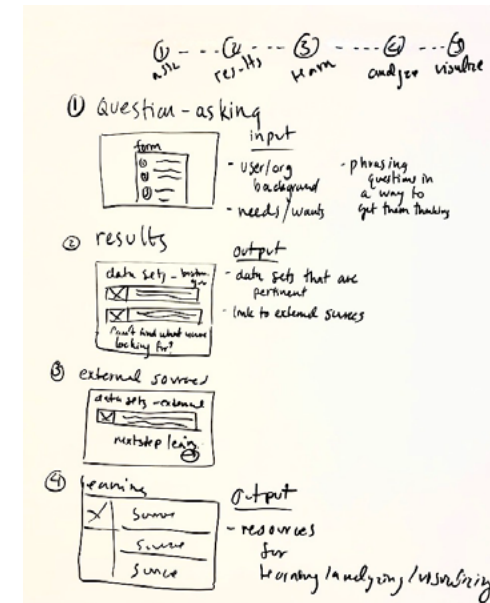 ① - - - - ② - - - ③ - - - - ④ - - - ⑤
ask results learn analyze visualize
① Question-asking
form
①
②
③
input
- user/org
background
- needs/wants
- phrasing
questions in
a way to
get them thinking
② results
data sets -
can't find what youre
looking for?
output
- data sets that are
pertinent
- link to external sources
③ external sources
data sets - external
next step
④ learning
source
source
source
output
- resources
for
learning/analyzing/visualizing